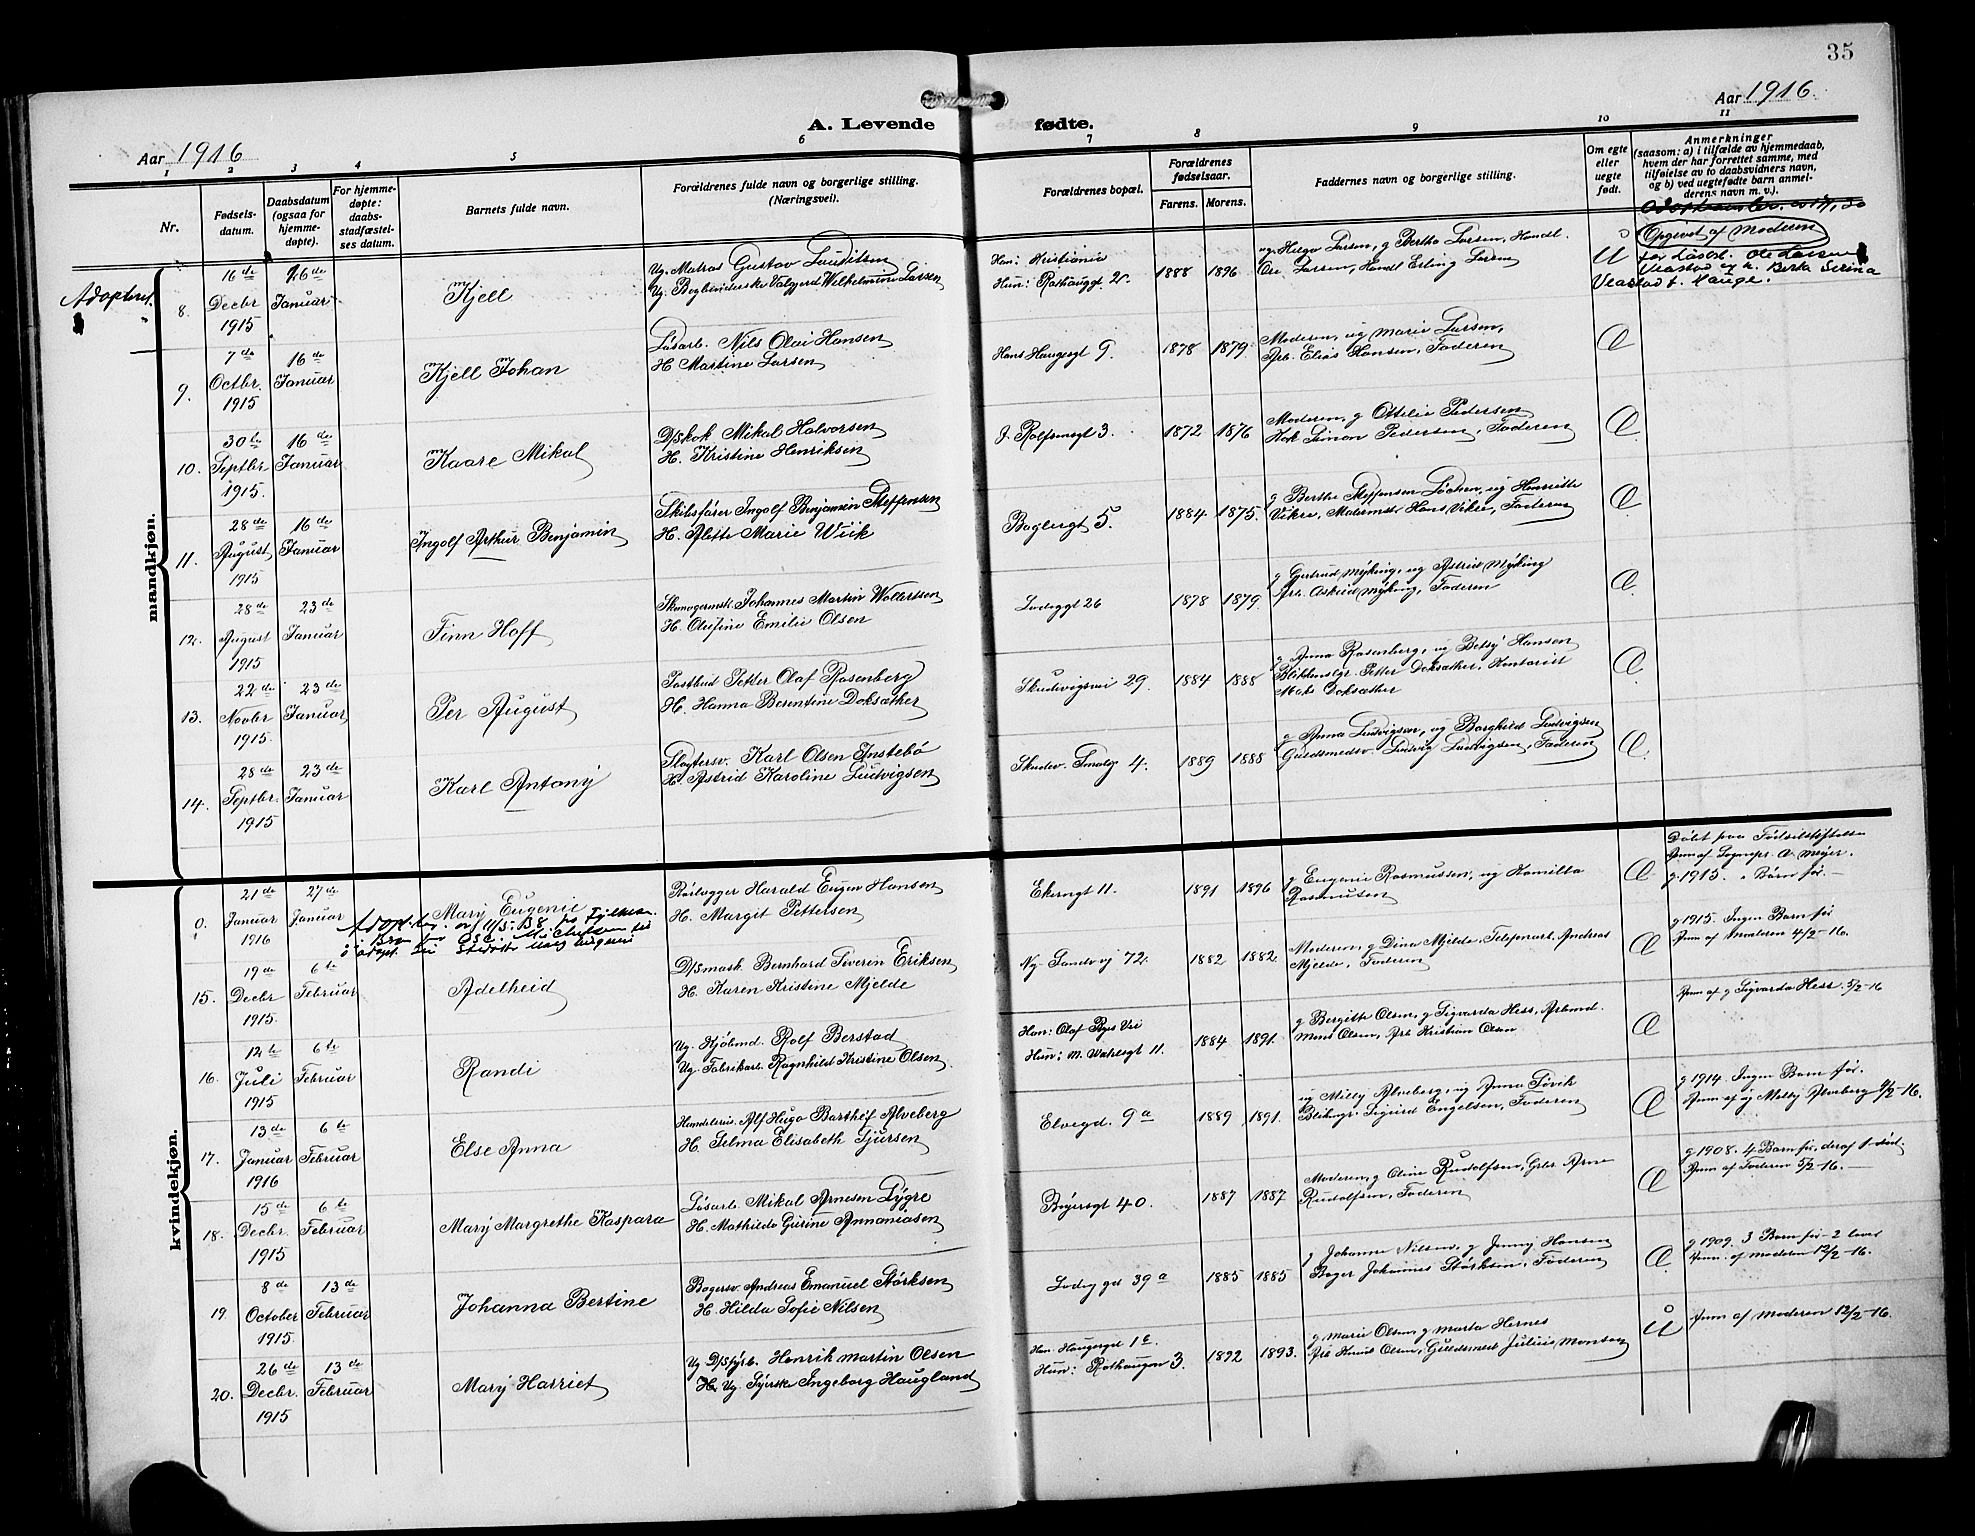 35
Aar 1916
Aar 1916.
A. Levende fødte.
1 2 3 4 5 6 7 8 9 10 11
Nr.
Fødsels-
datum.
Daabsdatum
(ogsaa for
hjemme-
døpte).
For hjemme-
døpte:
daabs-
stadfæstel-
ses datum.
Barnets fulde navn.
Forældrenes fulde navn og borgerlige stilling.
(Næringsvei).
Forældrenes bopæl.
Forældrenes
fødselsaar.
Farens. Morens.
Faddernes navn og borgerlige stilling.
Om egte
eller
uegte
født.
Anmerkninger
(saasom: a) i tilfælde av hjemmedaab,
hvem der har forrettet samme, med
tilføielse av to daabsvidners navn,
og b) ved uegtefødte barn anmel-
derens navn m. v.).
mandkjøn.
Adopteret.
8.
16de
Decbr.
1915
16de
Januar
Kjell
Ug. Matros Gustav Lauditsen
Ug. Bogbinderske Valgjerd Wilhelmine Larsen
Han: Kristiania
Hun: Rothauggt. 2c.
1888 1896
ug Helga Larsen, g Bertha Larsen, Handl.
Ole Larsen, Handl Erling Larsen
U
Opgivet af Moderen
for Løsarb. Ole Larsen
Veastad og h. Berta Serina
Veastad f. Hauge.
9.
7de
Octbr.
1915
16de
Januar
Kjell Johan
Løsarb. Nils Olai Hansen
H. Martine Larsen
Hans Haugesgt 9.
1878 1879
Moderen, ug Marie Larsen,
Arb. Elias Hansen, Faderen
Æ
10.
30te
Septbr.
1915.
16de
Januar
Kaare Mikal
D/Skok Mikal Halvorsen
H. Kristine Henriksen
J. Rolfsensgt 3.
1872 1876
Moderen, g Ottilie Pedersen
Kok Simon Pedersen, Faderen
Æ
11.
28de
August
1915
16de
Januar
Ingolf Arthur Benjamin
Skibsfører Ingolf Benjamin Steffensen
H. Alette Marie Wiik
Baglergt 5.
1884 1875.
g Berthe Steffensen Lochen, ug Henriette
Vikre, Malermst. Hans Vikre, Faderen
Æ
12.
28de
August
1915
23de
Januar
Finn Hoff
Skomagermst. Johannes Martin Wollertsen
H. Olufine Emilie Olsen
Ladeggt 26
1878 1879
g Gertrud Myking, ug Astrid Myking
Arb. Askild Myking, Faderen
Æ
13.
22de
Novbr
1915.
23de
Januar
Per August
Postbud Petter Olaf Rosenberg
H. Hanna Berentine Doksæther
Skudevigsvei 29.
1884 1888
g Anna Rosenberg, ug Betsy Hansen
Petter Doksæther, Kontorist
Doksæther
Æ
14.
28de
Septbr.
1915
23de
Januar
Karl Antony
Slagtersv. Karl Olsen Instebø
H. Astrid Karoline Ludvigsen
Skudev. Smalg 4.
1889 1888
g Anna Ludvigsen, ug Borghild Ludvigsen
Guldsmedsv. Ludvig Ludvigsen, Faderen
Æ
kvindekjøn.
0.
21de
Januar
1916
27de
Januar
Mary Eugenie
Rørlægger Harald Eugen Hansen
H. Margit Pettersen
Ekerngt 11.
1891 1896
g Eugenie Rasmussen, ug Kamilla
Rasmussen
Æ
Døbt paa Fødselsstiftelsen
Anm af Sognepr. A. Meyer.
g. 1915. Børn før.
15.
19de
Decbr
1915.
6te
Februar
Adelheid
D/Smask. Bernhard Severin Eriksen
H. Karen Kristine Mjelde
Ny-Sandvg 72.
1882 1882.
Moderen, g Dina Mjelde, Telefonarb. Andreas
Mjelde, Faderen
Æ
g 1915. Ingen Barn før
Anm af Moderen 4/2-16.
16.
12te
Juli
1915
6te
Februar
Randi
Ug. Kjøbmd. Rolf Berstad
Ug. Fabrikarb. Ragnhild Kristine Olsen
Han: Olaf Ryes Vei
Hun: M. Wahlsgt 11.
1884 1891.
g Bergitte Olsen, g Sigvarda Hess, Arbmd.
Mons Olsen, Arb Kristian Olsen
Æ
Anm af g Sigvarda Hess. 5/2-16
17.
13de
Januar
1916
6te
Februar
Else Anna
Handelsreis. Alf Hugo Barthef Alveberg
H. Selma Elisabeth Sjursen
Elvegd. 9a
1889 1891.
ug Milly Alveberg, ug Anna Søvik
Sigurd Engelsen, Faderen
Æ
g 1914. Ingen Barn før.
Anm af ug Milly Alveberg 4/2-16.
18.
15de
Decbr.
1915
6te
Februar
Mary Margrethe Kaspara
Løsarb. Mikal Arnesen Lygre
H. Mathilde Gurine Annaniasen
Bøyersgt 40.
1887 1887
Moderen, g Oline Rudolfsen, Gbr. Arne
Rudolfsen, Faderen
Æ
g 1908. 4 Barn før, deraf 1 død.
Anm af Faderen 5/2-16.
19.
8de
October
1915.
13de
Februar
Johanna Bertine
Bagersv. Andreas Emanuel Størksen
H. Hilda Sofie Nilsen
Ladegd 39a
1885 1885
g Johanne Nilsen, g Jenny Hansen
Bager Johannes Størksen, Faderen
Æ
g 1909. 3 Barn før - 2 lever
Anm. af moderen 12/2-16.
20.
26de
Decbr.
1915
13de
Februar
Mary Harriet
Ug D/Sfyrb. Henrik Martin Olsen
Ug. Syerske Ingeborg Haugland
Han. Haugergd 1c
Hun: Rothaugen 3.
1892 1893.
g Marie Olsen, g Marta Hernes
Arb Knut Olsen, Guldsmed Julius Monsen
U
Anm af Moderen 12/2-16.